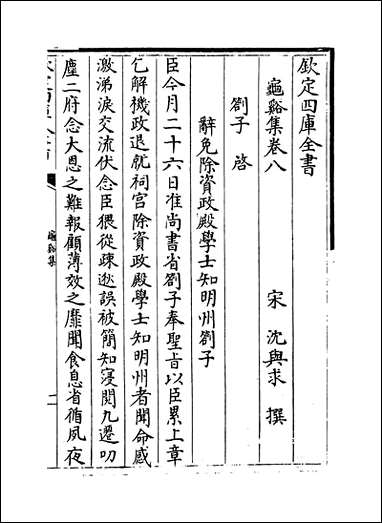 欽定四庫全書
龜谿集卷八
宋 沈與求 撰
劄子 啓
辭免除資政殿學士知明州劄子
臣今月二十六日准尚書省劄子奉聖旨以臣累上章
乞解機政退就祠宫除資政殿學士知明州者聞命感
激涕淚交流伏念臣猥從疎逖誤被簡知寖閱九遷叨
塵二府念大恩之難報顧薄效之靡聞食息省循夙夜
龜谿集